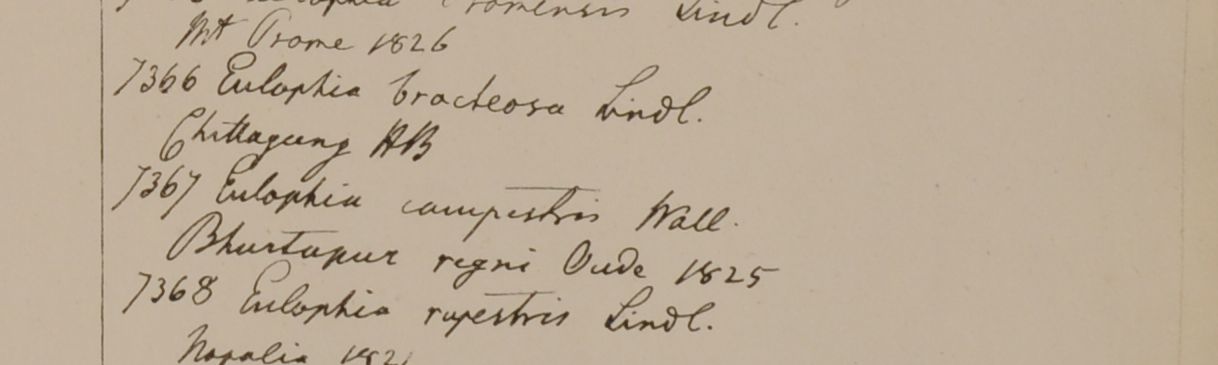 Lindl.
Mt Prome 1826
7366 Eulophia bracteosa Lindl.
Chittagung HB
7367 Eulophia campestris Wall.
Bhurtapur regni Oude 1825
7368 Eulophia rupestris Lindl.
Napalia